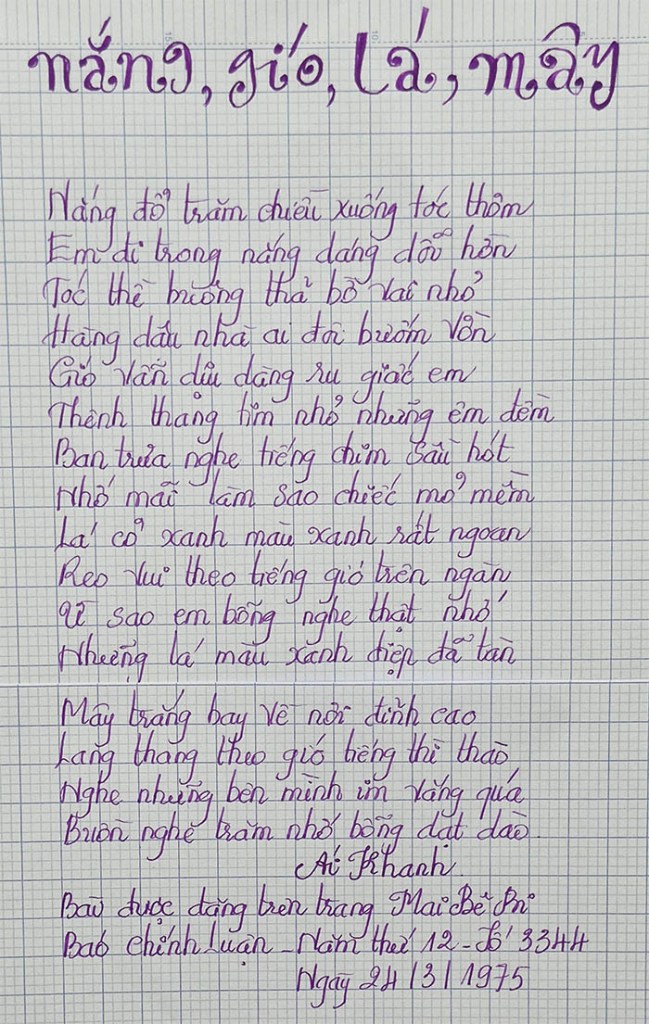 nắng, gió, lá, mây
Nắng đổ trăm chiều xuống tóc thơm
Em đi trong nắng dáng dỗi hờn
Tóc thề buông thả bờ vai nhỏ
Hàng dậu nhà ai đôi bướm vờn
Gió vẫn dịu dàng ru giấc em
Thênh thang tim nhỏ những êm đềm
Ban trưa nghe tiếng chim sâu hót
Nhớ mãi làm sao chiếc mỏ mềm
Lá cỏ xanh màu xanh rất ngoan
Reo vui theo tiếng gió trên ngàn
Vì sao em bỗng nghe thật nhớ
Những lá màu xanh điệp đã tàn
Mây trắng bay về nơi đỉnh cao
Lang thang theo gió tiếng thì thào
Nghe nhưng bên mình im vắng quá
Buồn nghe trăm nhớ bỗng dạt dào.
Ái Khanh.
Bài được đăng trên trang Mai Bê Bi
Báo Chính Luận - Năm thứ 12 - Số 3344
Ngày 24/3/1975